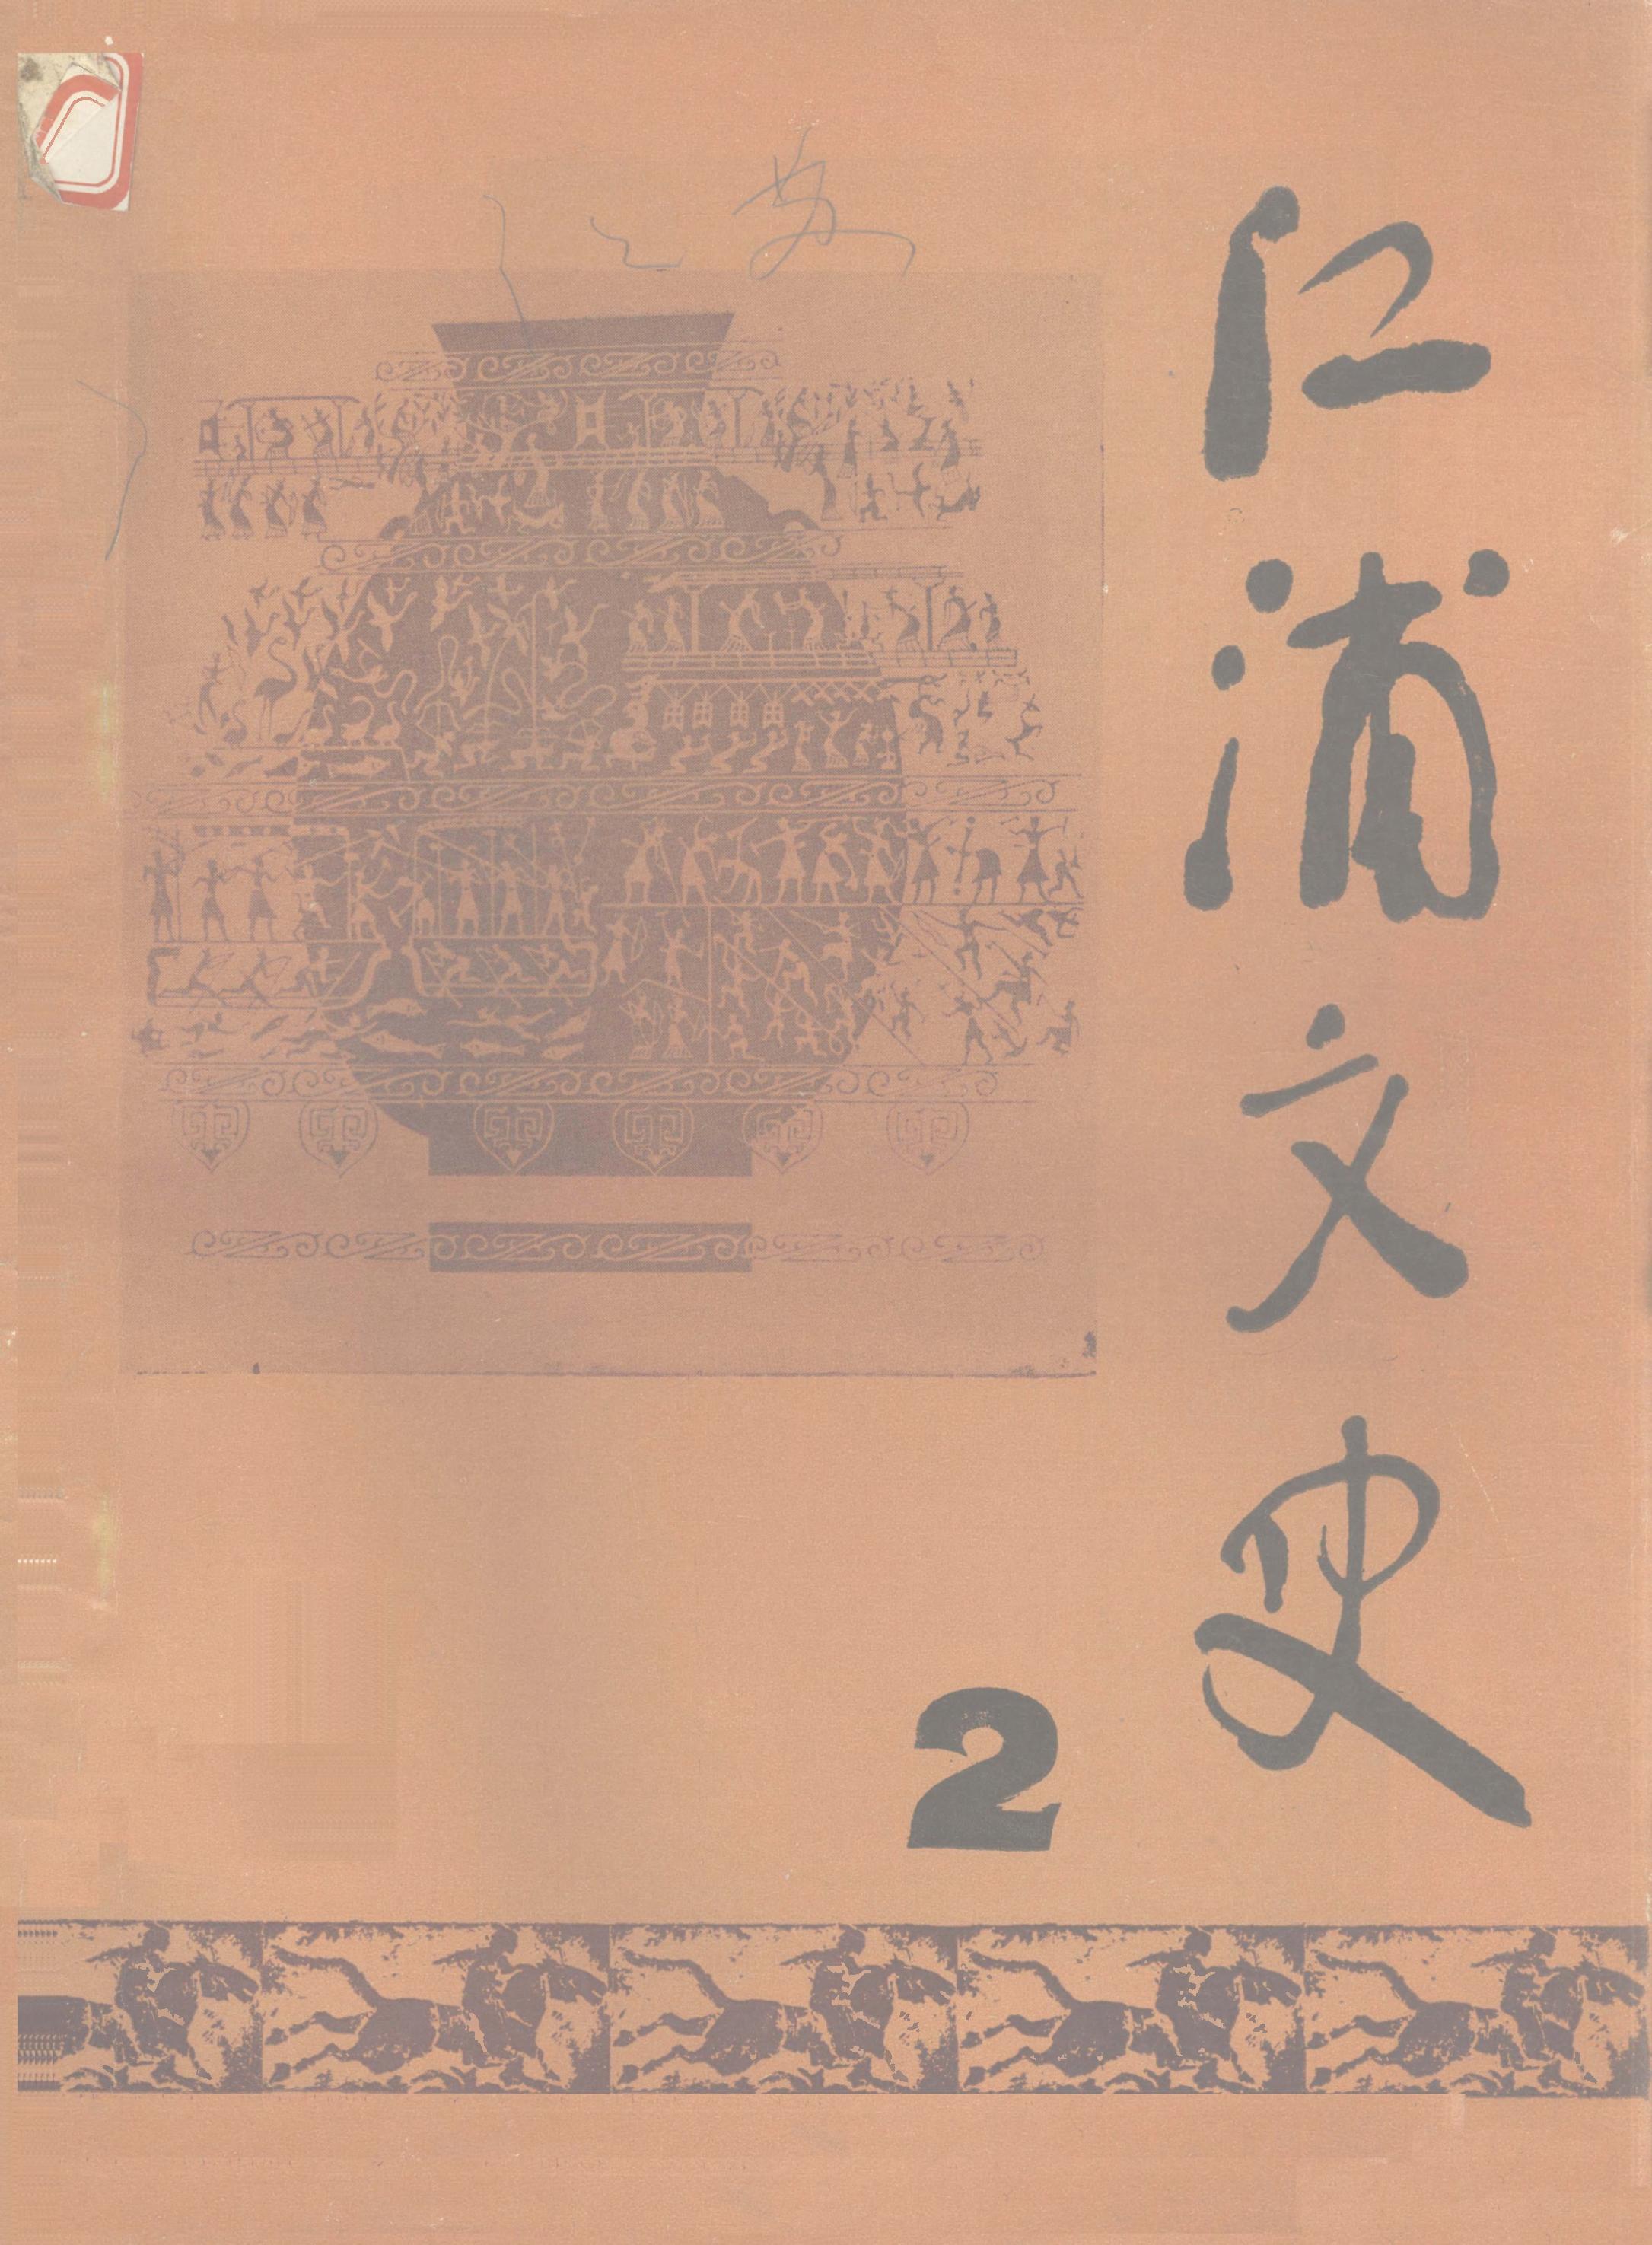 江浦文史
2
江苏